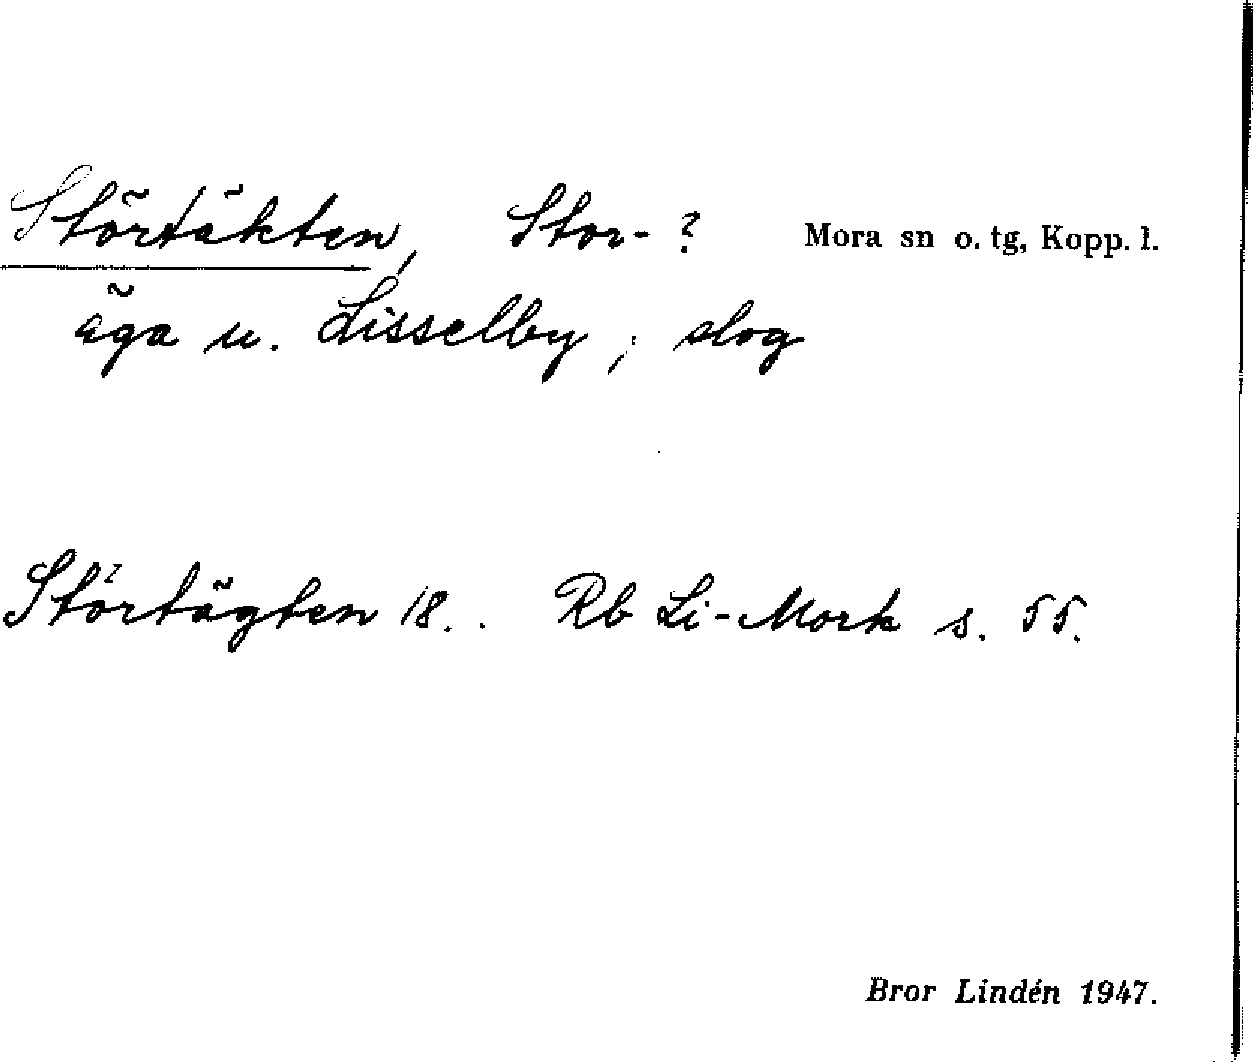 Störtäkten, Stor-? Mora sn o. tg, Kopp. l.
äga u. Lisselby; slog
Störtägten 18.. Rb Li-Mork s. 55.
Bror Lindén 1947.